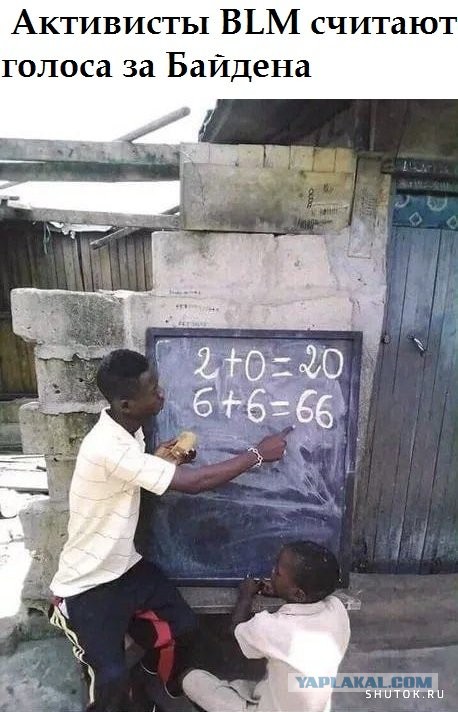 Активисты BLM считают
голоса за Байдена
2+0=20
6+6=66
YAPLAKAL.COM
SHUTOK.RU